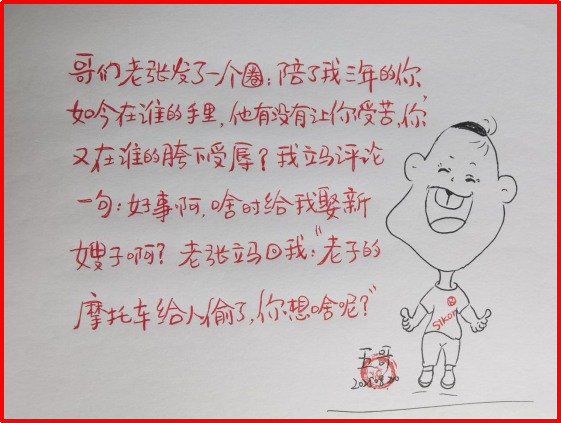 哥们老张发了一个圈：陪了我三年的你，
如今在谁的手里，他有没有让你受苦，你
又在谁的胯下受辱？我立马评论
一句：好事啊，啥时给我娶新
嫂子啊？老张立马回我：“老子的
摩托车给人偷了，你想啥呢？”
Sikon
五哥